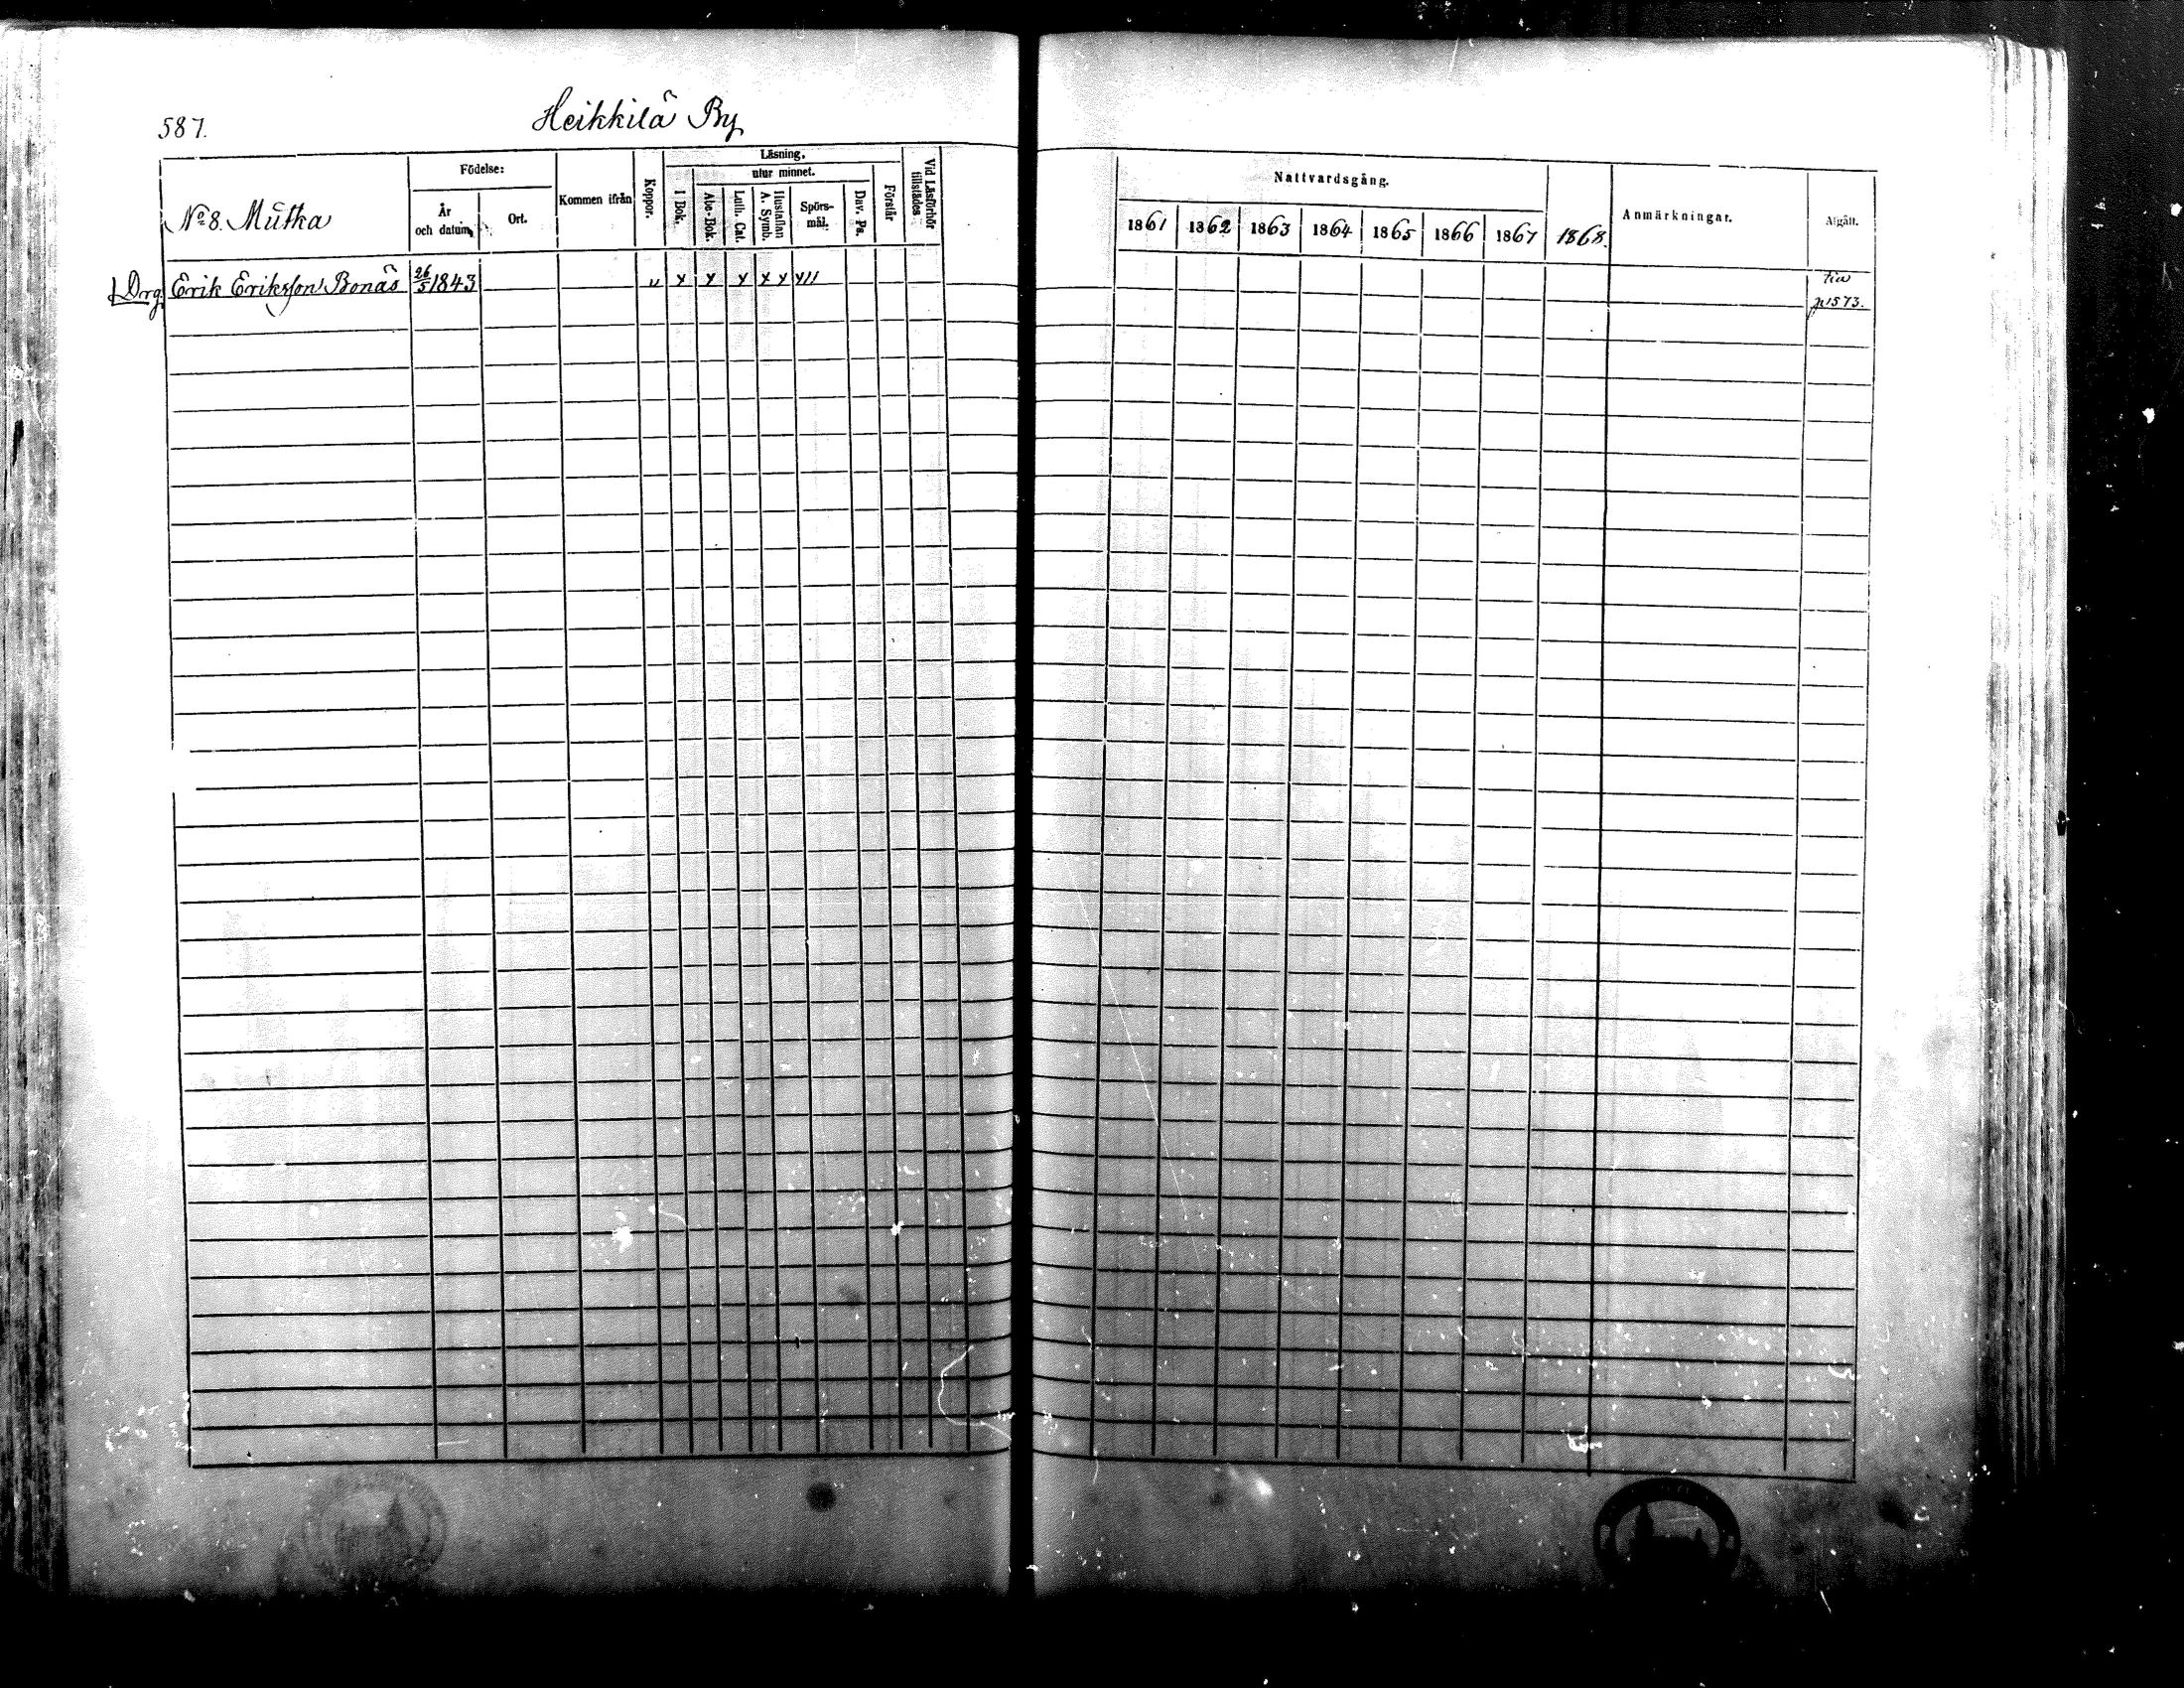 587.
Heikkilä By
No 8. Mutka
Födelse:
År och datum
Ort.
Kommen ifrån
Koppor.
Läsning.
utur minnet.
I Bok.
Abc-Bok.
Luth. Cat.
Hustaflan A. Symb.
Spörsmål.
Dav. Ps.
Förstår
Vid Läsförhör tillstädes
Nattvardsgång.
1861 1862 1863 1864 1865 1866 1867 1868.
Anmärkningar.
Afgått.
Drg. Erik Eriksson Bonäs 26/5 1843
p 1573.